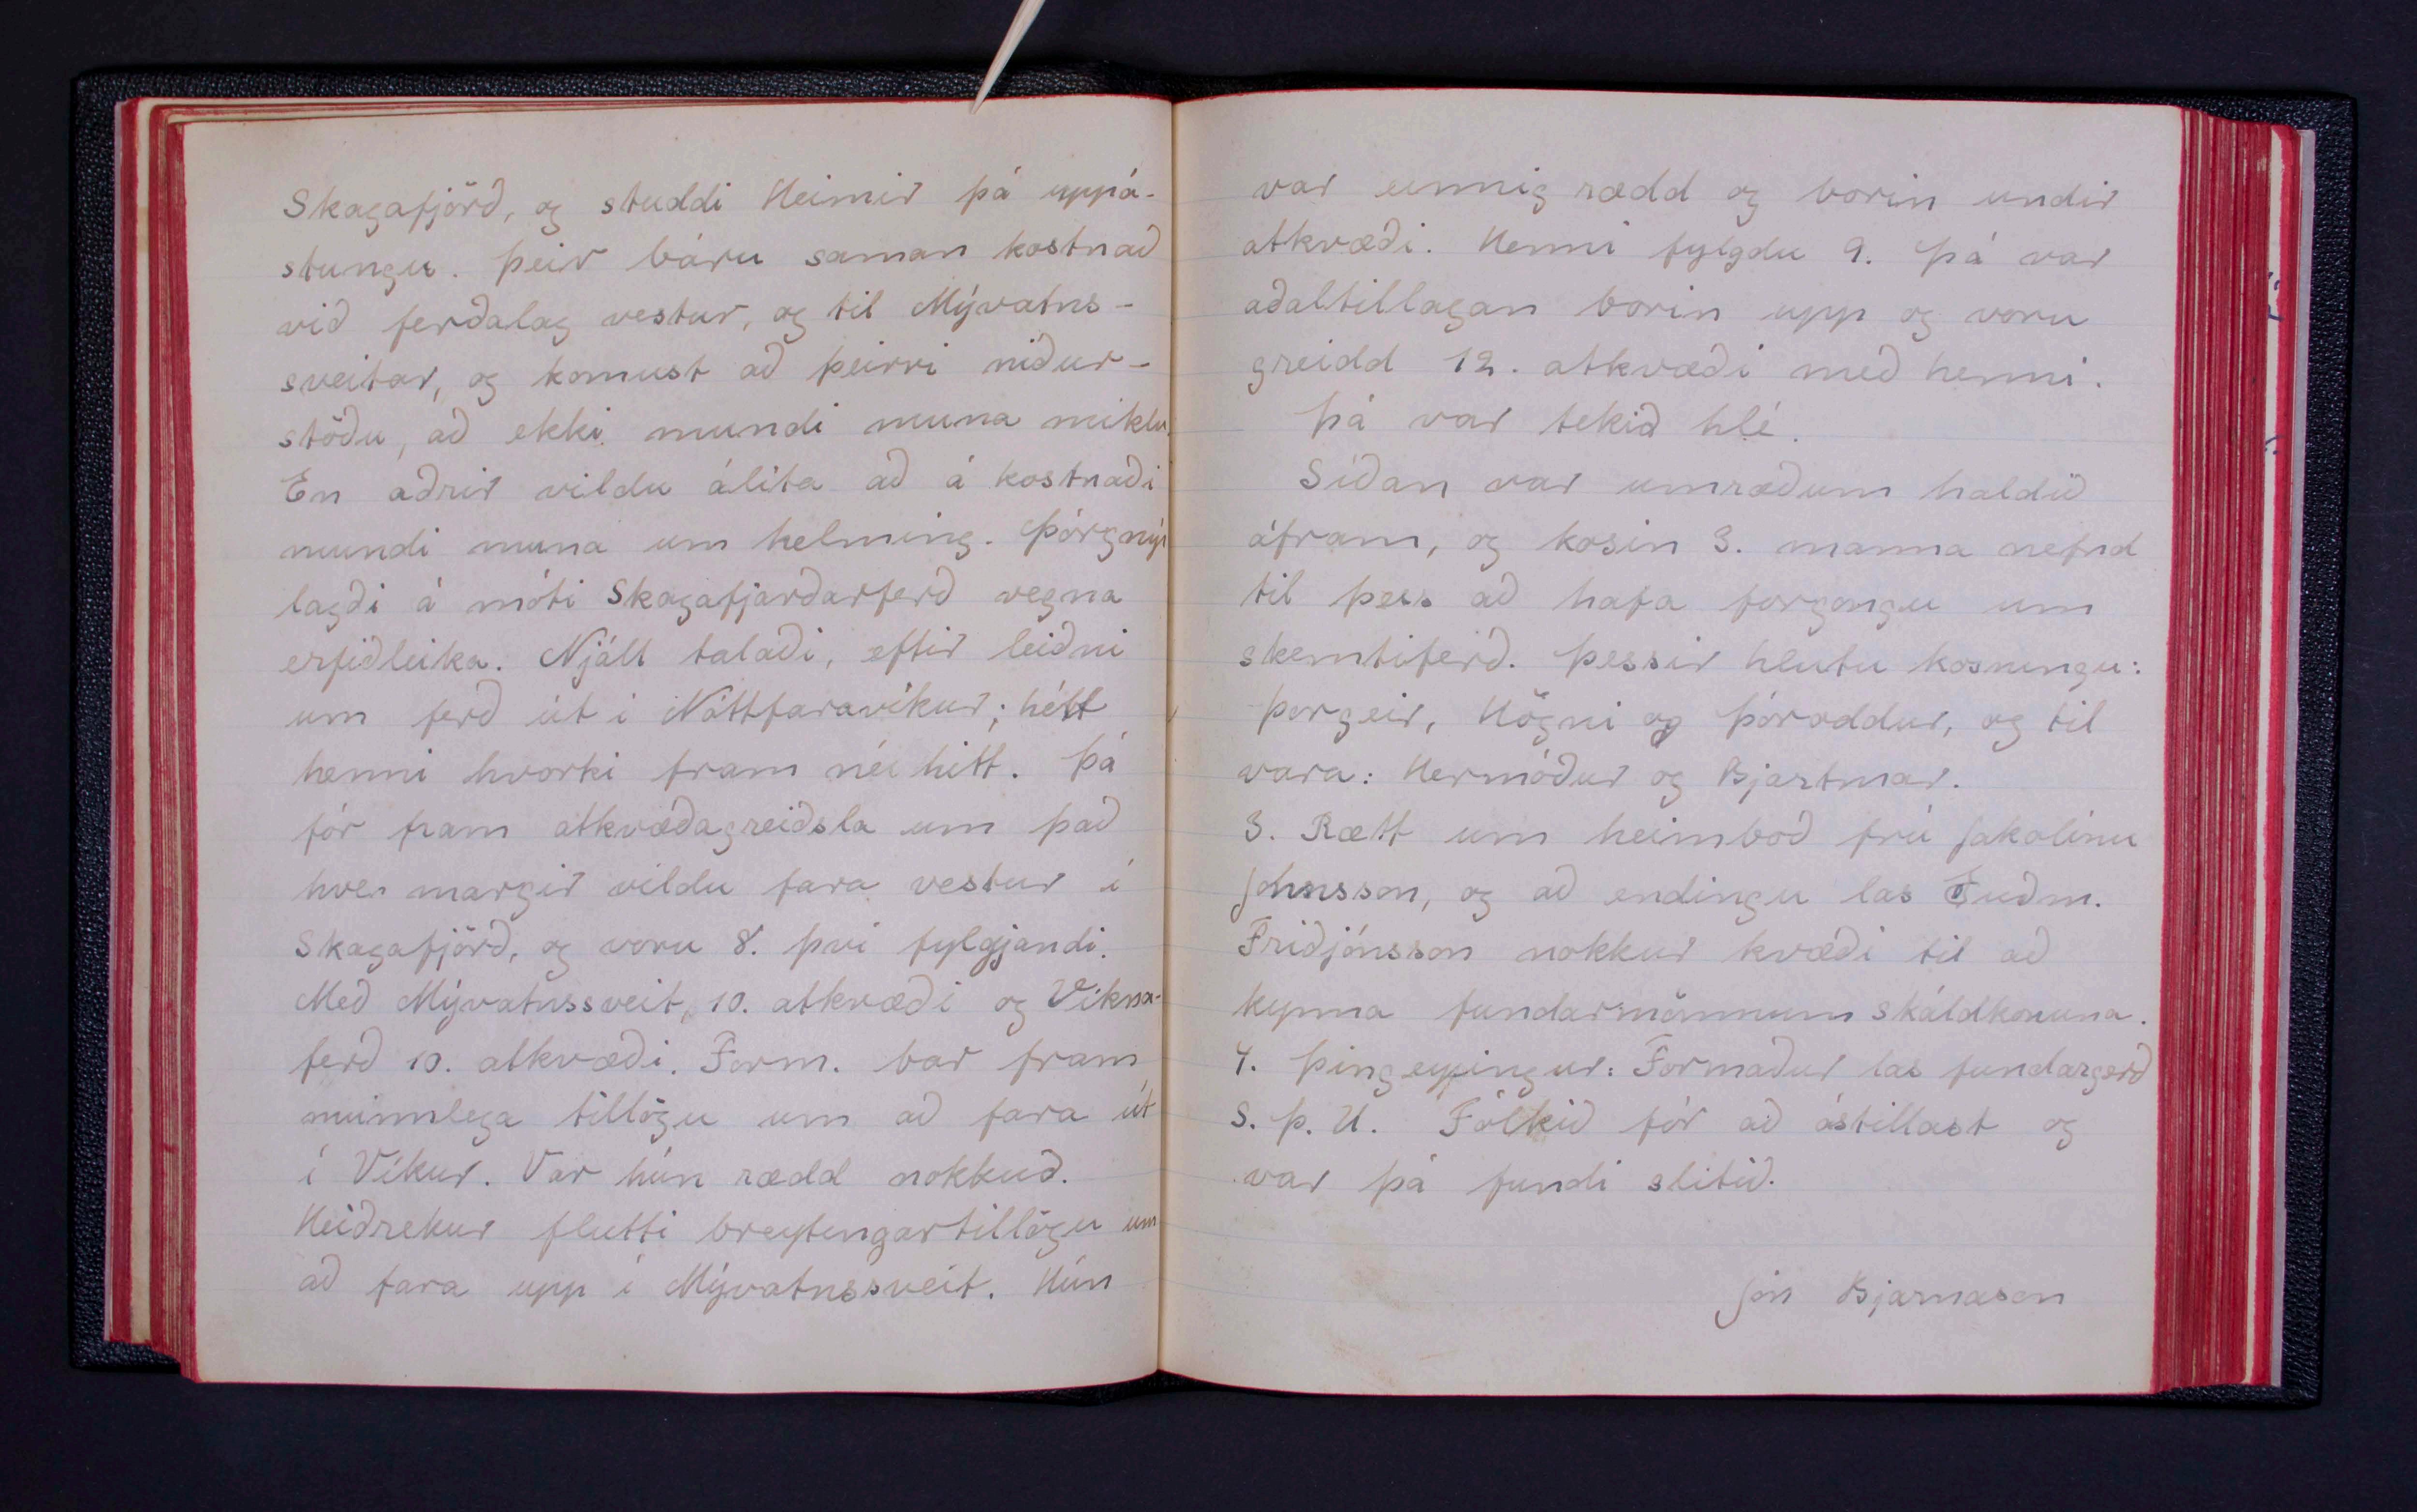 Skagafjörð, og studdi Heimir þá uppá-
stungu. Þeir báru saman kostnað
við ferðalag vestur, og til Mývatns-
sveitar, og komust að þeirri niður-
stöðu, að ekki mundi muna miklu.
En aðrir vildu álíta að á kostnaði
mundi muna um helming. Þórgnýr
lagði á móti Skagafjarðarferð vegna
erfiðleika. Njáll talaði, eftir leiðni
um ferð út í Náttfaravíkur; hélt
henni hvorki fram né hitt. Þá
fór fram atkvæðagreiðsla um það
hve margir vildu fara vestur í
Skagafjörð, og voru 8. því fylgjandi.
Með Mývatnssveit, 10. atkvæði og Víkna-
ferð 10. atkvæði. Form. bar fram
munnlega tillögu um að fara út
í Víkur. Var hún rædd nokkuð.
Heiðrekur flutti breytingartillögu um
að fara upp í Mývatnssveit. Hún
var einnig rædd og borin undir
atkvæði. Henni fylgdu 9. Þá var
aðaltillagan borin upp og voru
greidd 12. atkvæði með henni.
Þá var tekið hlé.
Síðan var umræðum haldið
áfram, og kosin 3. manna nefnd
til þess að hafa forgöngu um
skemtiferð. Þessir hlutu kosningu:
Þorgeir, Högni og Þóroddur, og til
vara: Hermóður og Bjartmar.
3. Rætt um heimboð frú Jakolínu
Johnsson, og að endingu las Guðm.
Friðjónsson nokkur kvæði til að
kynna fundarmönnum skáldkonuna.
4. Þingeyingur: Formaður las fundargerð
S. Þ. U. Fólkið fór að ástillast og
var þá fundi slitið.
Jón Bjarnason